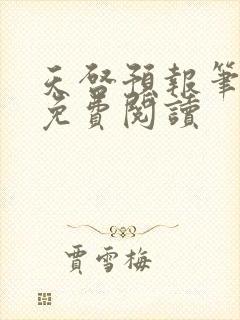 天啓預報筆
免費閱讀
賈雪梅